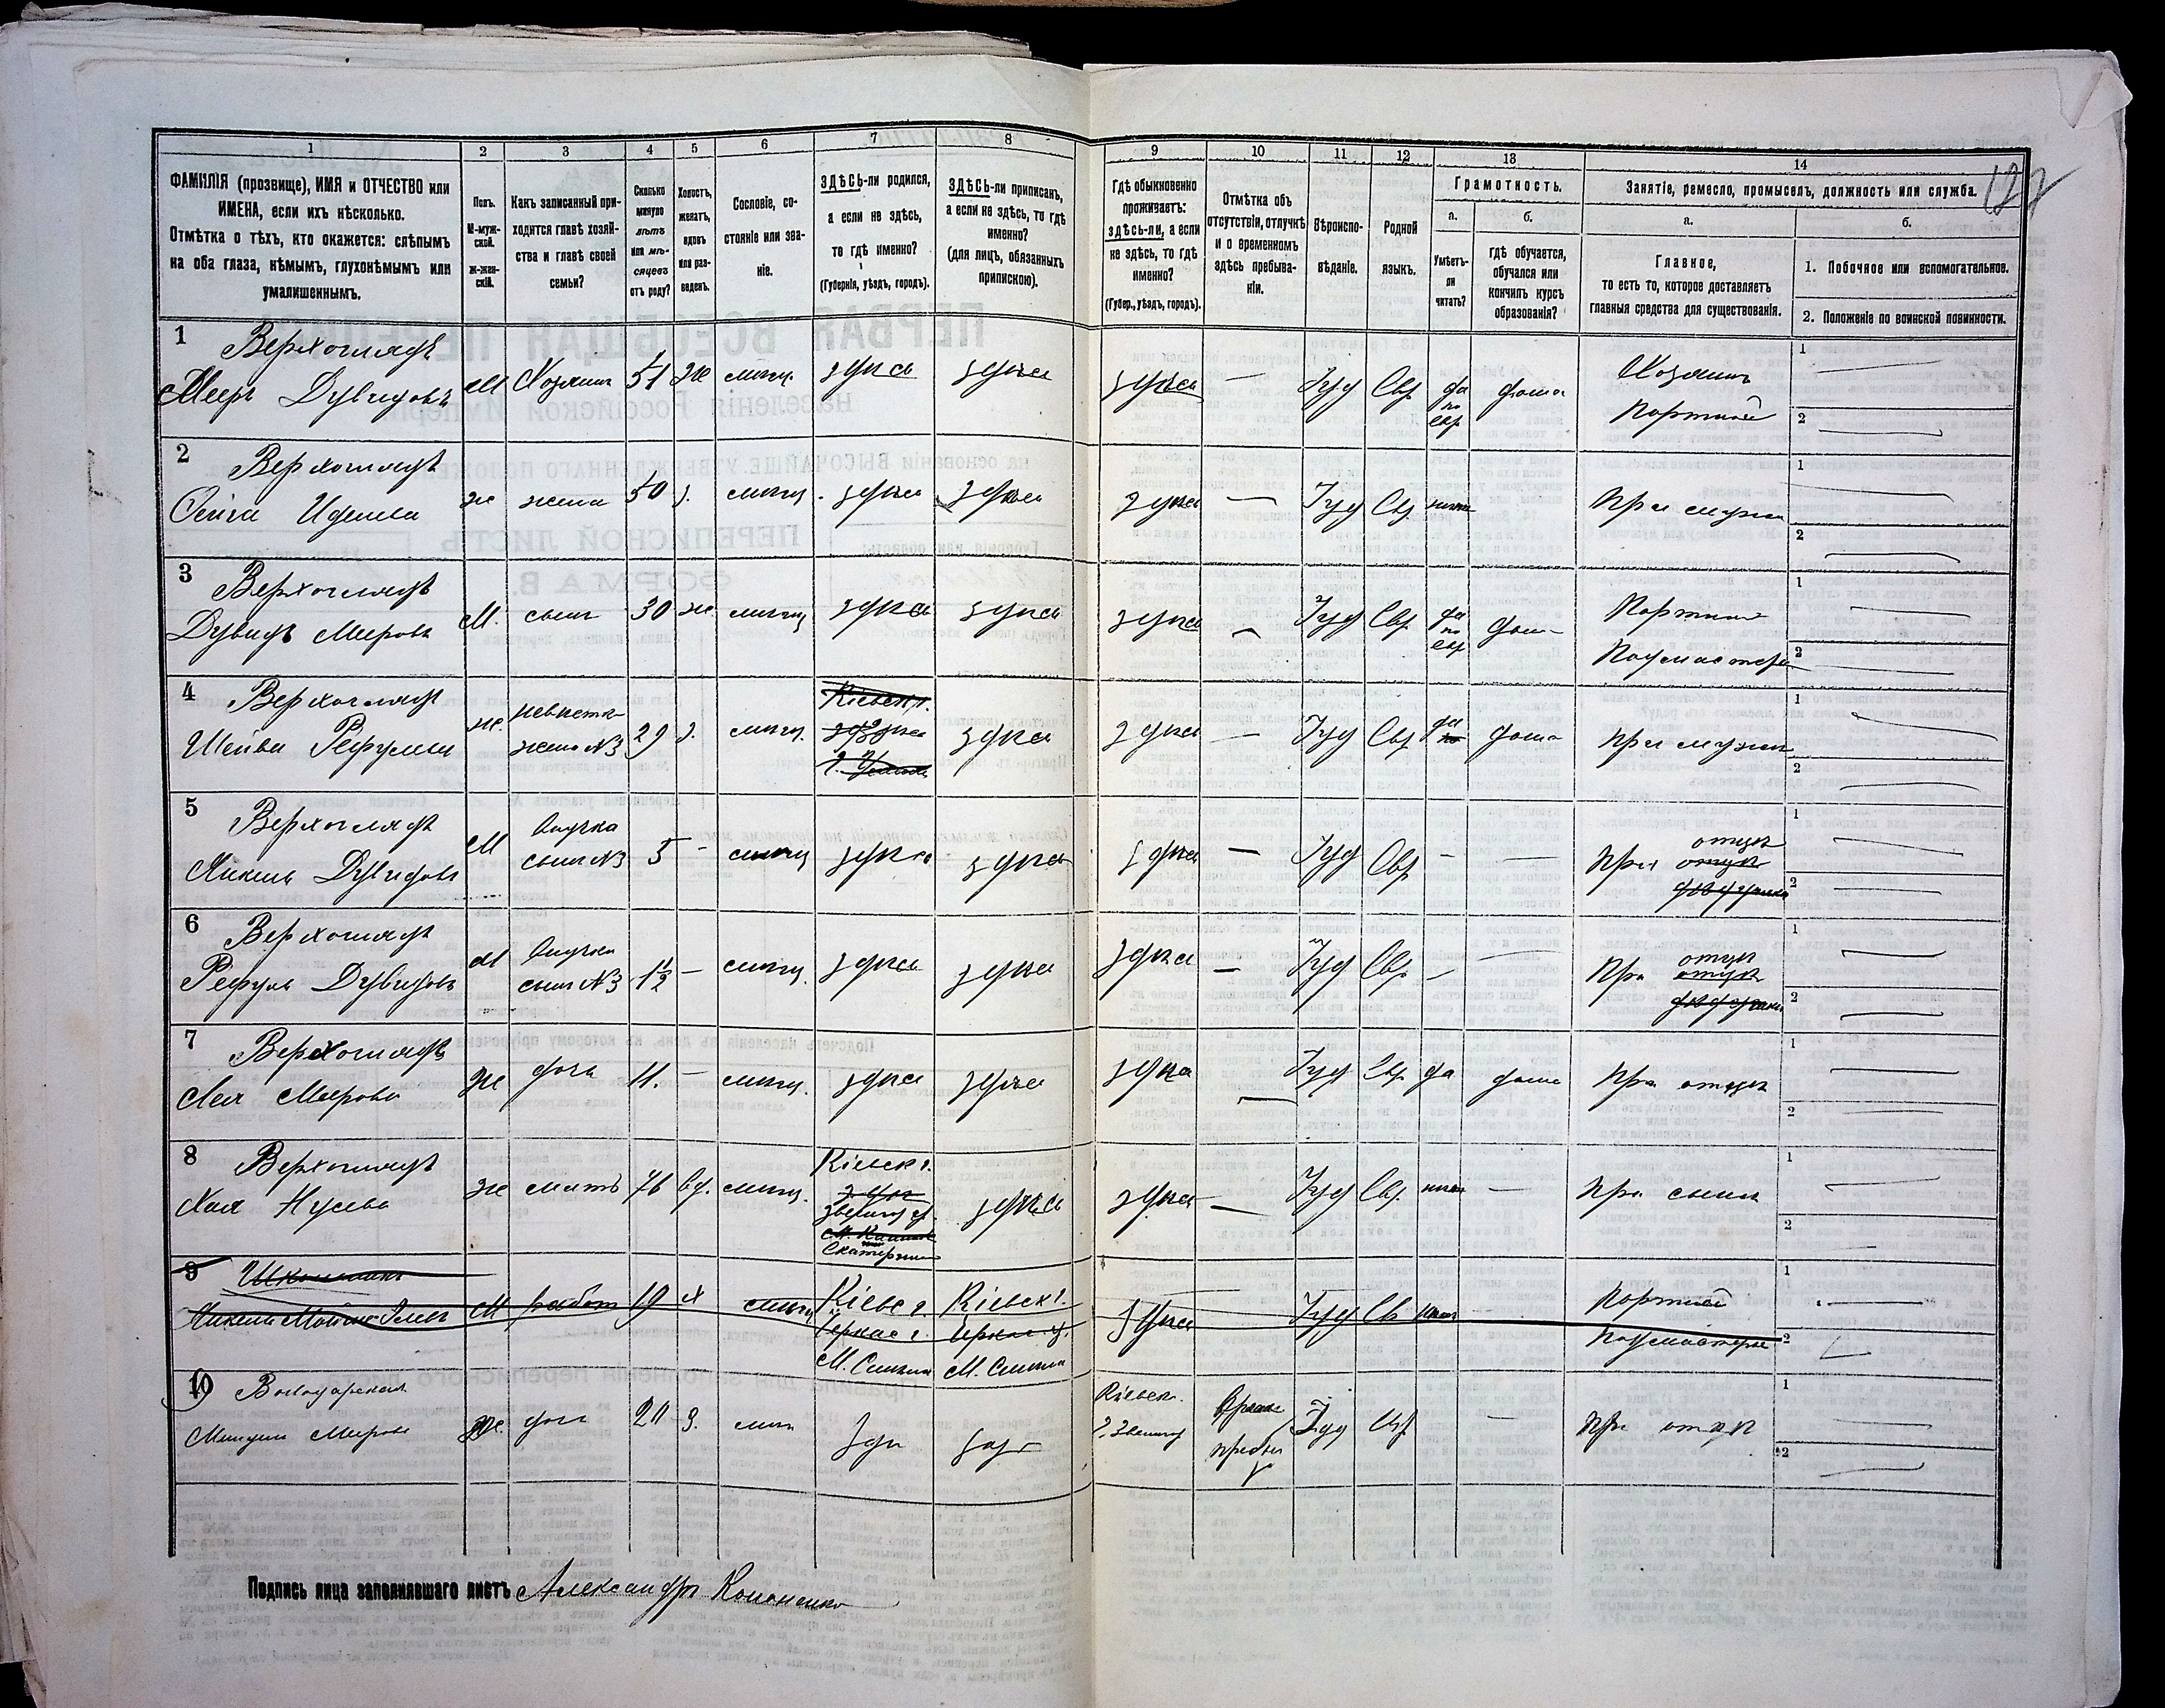 1 2 3 4 5 6 7 8 9 10 11 12 13 14
127
ФАМИЛІЯ (прозвище), ИМЯ и ОТЧЕСТВО или
ИМЕНА, если ихъ нѣсколько.
Отмѣтка о тѣхъ, кто окажется: слѣпымъ
на оба глаза, нѣмымъ, глухонѣмымъ или
умалишеннымъ.
Полъ.
М-муж-
ской.
ж-жен-
скій.
Какъ записанный при-
ходится главѣ хозяй-
ства и главѣ своей
семьи?
Сколько
минуло
лѣтъ
или мѣ-
сяцевъ
отъ роду?
Холостъ,
женатъ,
вдовъ
или раз-
веденъ.
Сословіе, со-
стояніе или зва-
ніе.
ЗДѢСЬ-ли родился,
а если не здѣсь,
то гдѣ именно?
(Губернія, уѣздъ, городъ).
ЗДѢСЬ-ли приписанъ,
а если не здѣсь, то гдѣ
именно?
(для лицъ, обязанныхъ
припискою).
Гдѣ обыкновенно
проживаетъ:
здѣсь-ли, а если
не здѣсь, то гдѣ
именно?
(Губер., уѣздъ, городъ).
Отмѣтка объ
отсутствіи, отлучкѣ
и о временномъ
здѣсь пребыва-
ніи.
Вѣроиспо-
вѣданіе.
Родной
языкъ.
Грамотность.
а.
Умѣетъ-
ли
читать?
б.
гдѣ обучается,
обучался или
кончилъ курсъ
образованія?
Занятіе, ремесло, промыселъ, должность или служба.
а.
Главное,
то есть то, которое доставляетъ
главныя средства для существованія.
б.
1. Побочное или вспомогательное.
2. Положеніе по воинской повинности.
1 Верхоглядъ
Мееръ Дувидовъ М Хозяинъ 51 Ж мѣщ. здѣсь здѣсь здѣсь — Іуд Евр да по евр дома Хозяинъ Портной 1 — 2 —
2 Верхоглядъ
ж жена 50 з. мѣщ. здѣсь здѣсь здѣсь — Іуд Евр. При мужѣ 1 — 2 —
3 Верхоглядъ
Дувидъ Меировъ М. сынъ 30 ж. мѣщ здѣсь здѣсь здѣсь — Іуд Евр да по евр дом Портной Подмастерье 1 — 2 —
4 Верхоглядъ
Шейва ж. невѣстка жена №3 29 з. мѣщ. Кіевск г. здѣсь здѣсь здѣсь — Іуд Евр да по дома При мужѣ 1 — 2 —
5 Верхоглядъ
Дувидовъ М внучка сынъ №3 5 - мѣщ здѣсь здѣсь здѣсь — Іуд Евр - — При отцѣ отцѣ 1 — 2 —
6 Верхоглядъ
Рефулъ Дувидовъ М внучка сынъ №3 1½ — мѣщ. здѣсь здѣсь здѣсь — Іуд Евр. — — При отцѣ отцѣ 1 — 2 —
7 Верхоглядъ
Лея Меерова ж дочь 11. — мѣщ. здѣсь здѣсь здѣсь — Іуд Евр да дома При отцѣ 1 — 2 —
8 Верхоглядъ
Хая Нусева ж мать 76 вд. мѣщ. Кіевск г. здѣсь здѣсь — Іуд Евр. — При сынѣ 1 — 2 —
9 М работ 19 х мѣщ Кіевс г. Черкас г. М. Смѣла Кіевск г. Черкас у. М. Смѣла здѣсь Іуд Ев Портной Подмастерье 1 — 2
10 Володарская
Меирова ж. дочь 20 з. мѣщ здѣ здѣ Кіевск. г. Звениг Іуд Евр — При отцѣ 1 — 2 —
Подпись лица заполнявшаго листъ Александръ Кононенко